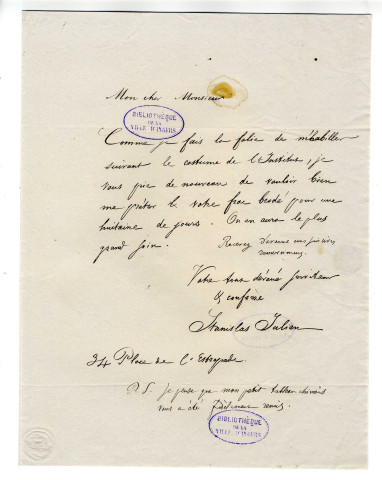 Mon cher Monsieur
BIBLIOTHÈQUE
DE LA
VILLE D'ANGERS
Comme je fais la folie de m'habiller
suivant le costume de l'Institut, je
vous prie de nouveau de vouloir bien
me prêter le votre frac brodé pour une
huitaine de jours. On en aura le plus
grand soin. Recevez d'avance mes sincères
remerciements.
Votre très dévoué serviteur
& confrère
Stanislas Julien
34 Place de l'Estrapade.
P.S. Je pense que mon petit tableau chinois
vous a été fidèlement remis.
BIBLIOTHÈQUE
DE LA
VILLE D'ANGERS